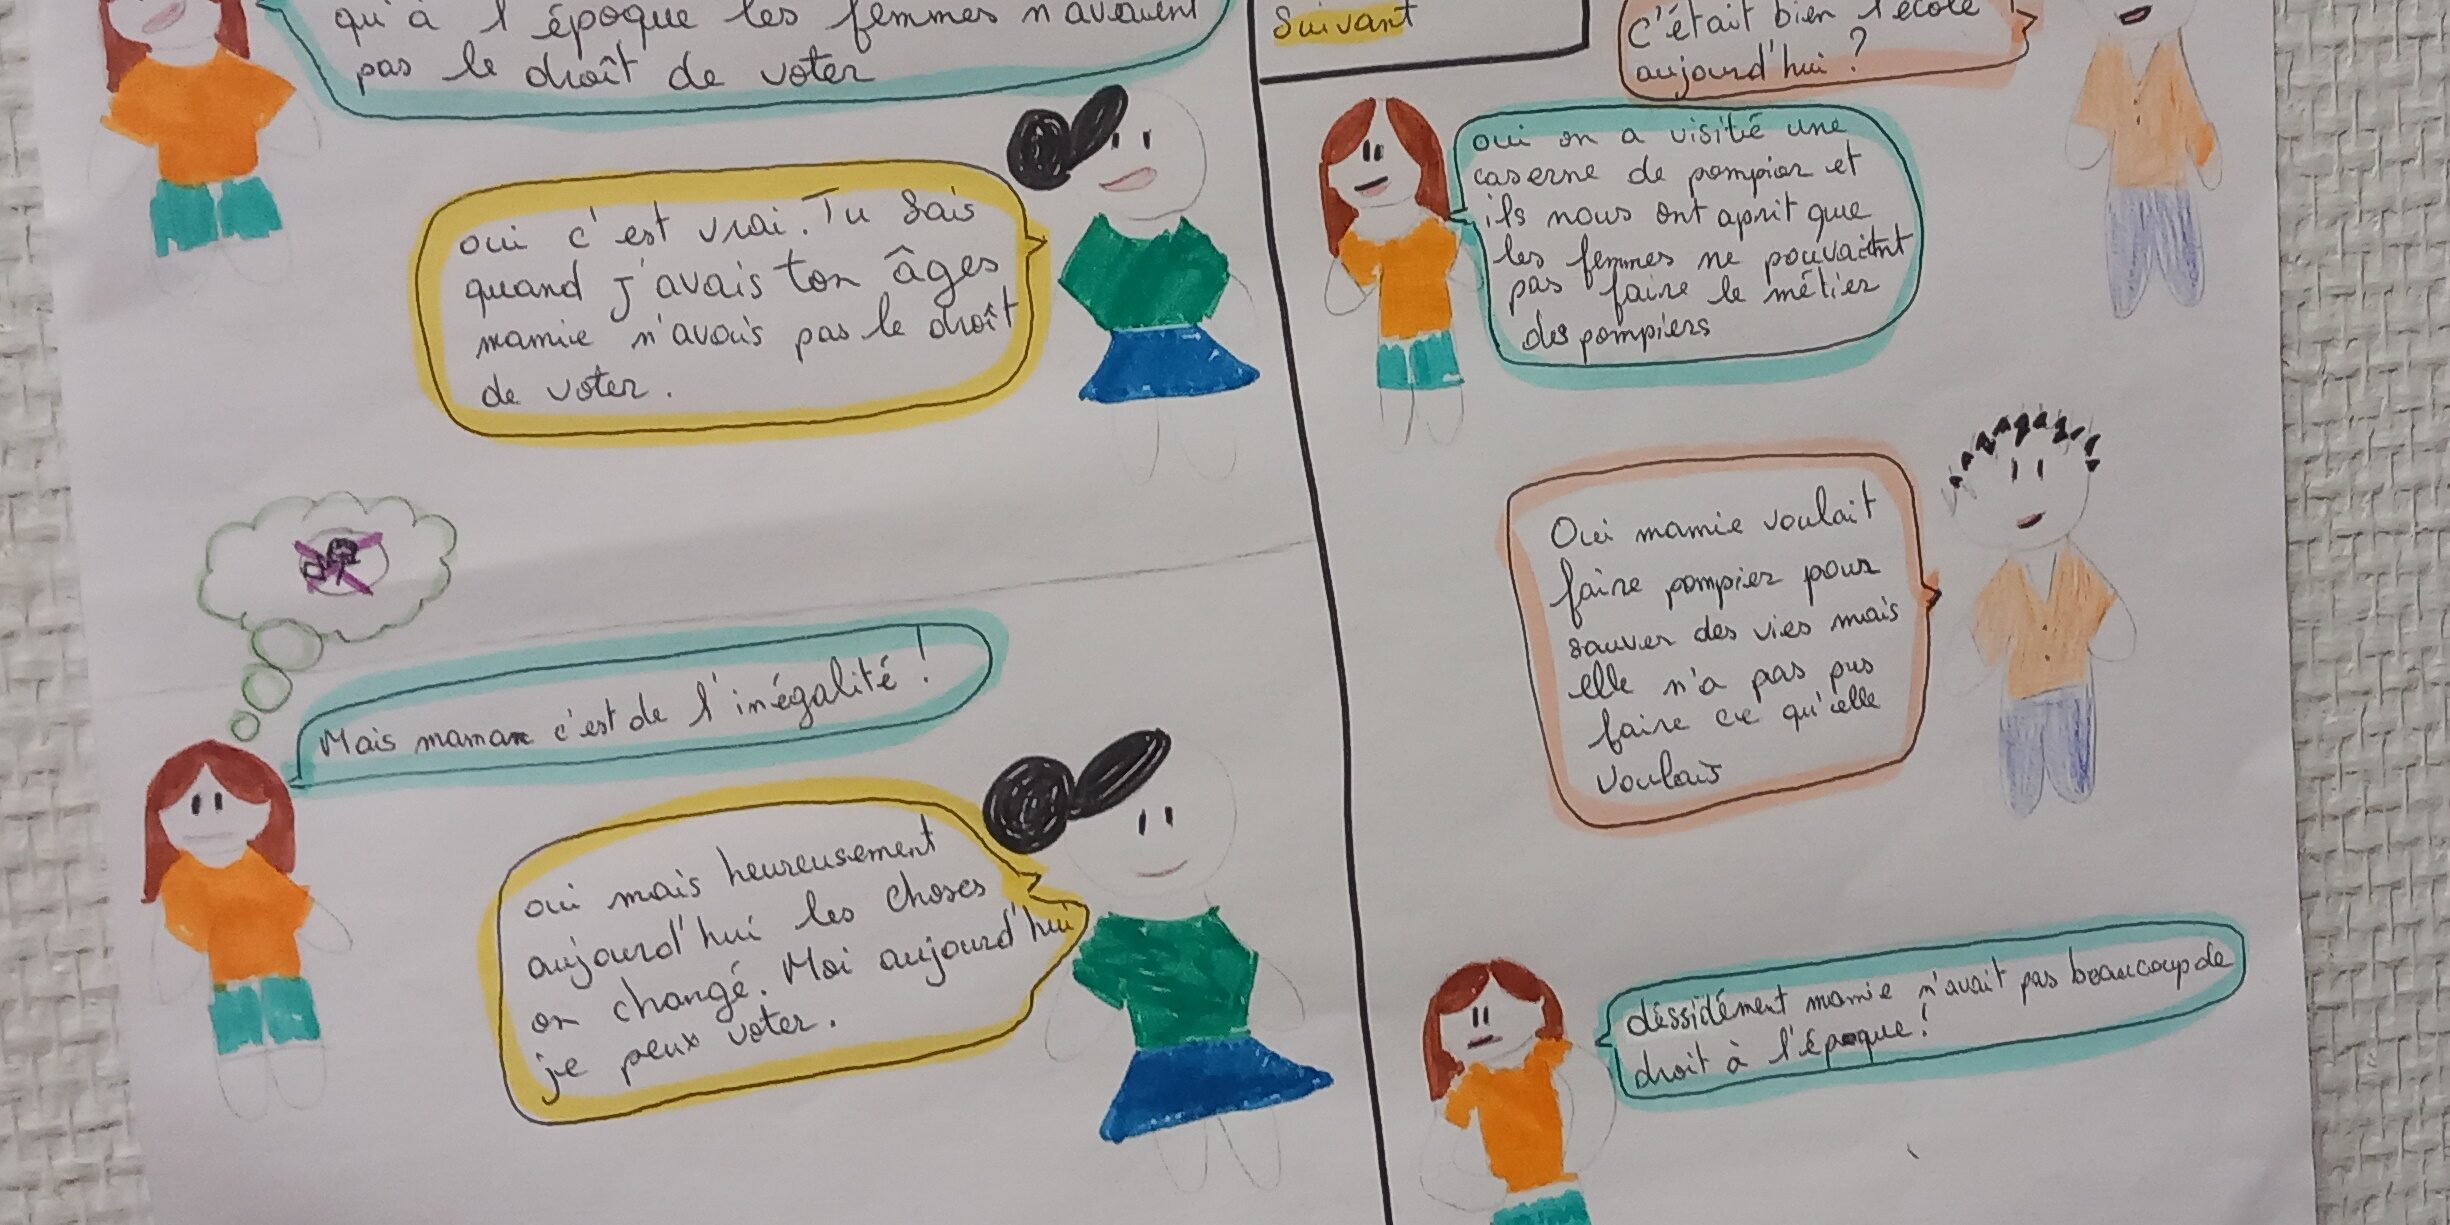 qu'à l'époque les femmes n'avaient
pas le droît de voter
oui c'est vrai. Tu sais
quand j'avais ton âges
mamie n'avais pas le droît
de voter.
Mais maman c'est de l'inégalité !
oui mais heureusement
aujourd'hui les choses
on changé. Moi aujourd'hui
je peux voter.
Suivant
c'était bien l'école
aujourd'hui ?
oui on a visité une
caserne de pompier et
ils nous ont aprit que
les femmes ne pouvaient
pas faire le métier
des pompiers
Oui mamie voulait
faire pompier pour
sauver des vies mais
elle n'a pas pus
faire ce qu'elle
voulais
déssidément mamie n'avait pas beaucoup de
droit à l'époque !